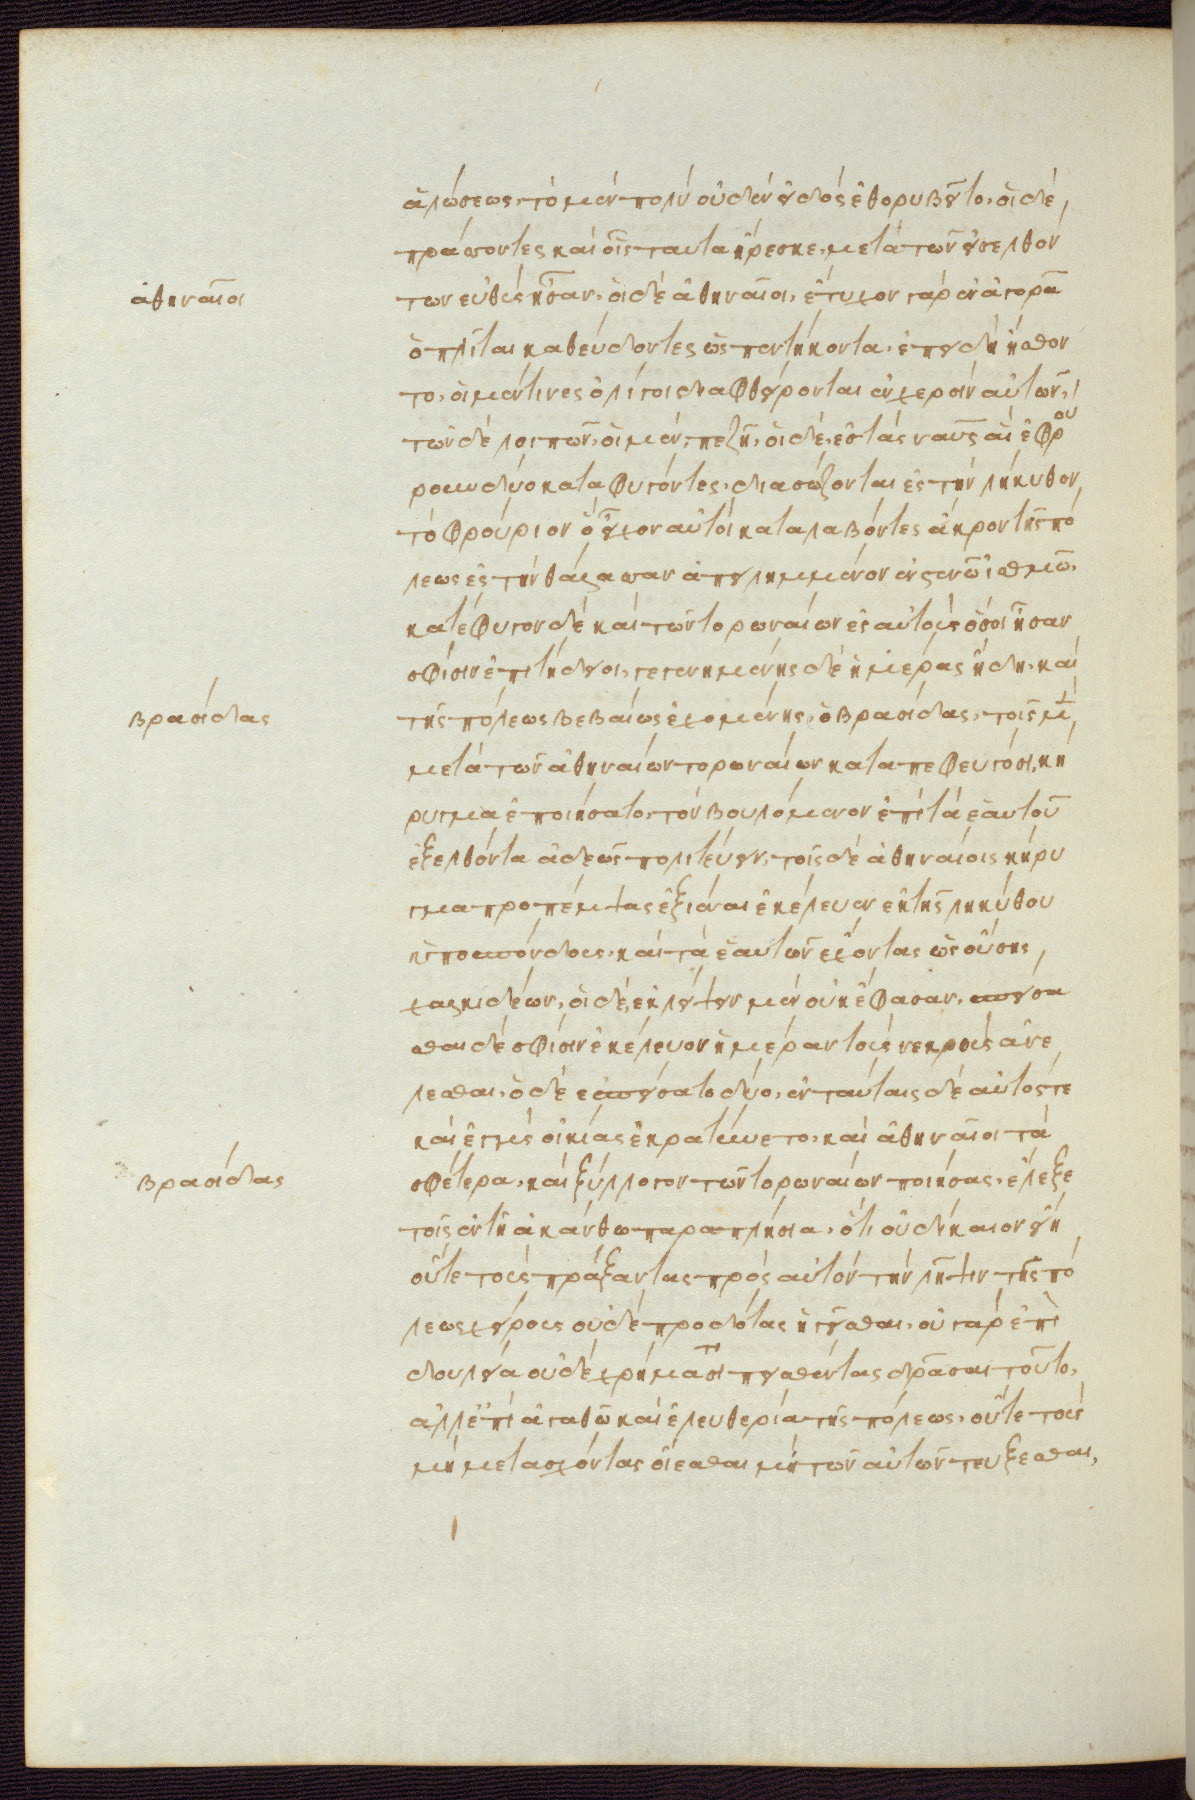 ἁλώσεως, τὸ μὲν πολὺ οὐδὲν εἰδὸς ἐθορυβεῖτο, οἱ δὲ
πράσσοντες καὶ οἷς ταυτα ἤρεσκε, μετὰ τῶν εἰσελθόν
ἀθηναῖοι
των εὐθὺς ἦσαν, οἱ δὲ ἀθηναῖοι, ἔτυχον γὰρ ἐν ἀγορᾶ
ὁπλῖται καθεύδοντες ὡς πεντήκοντα, ἐπειδὴ ἤσθον
το, οἱ μέν τινες ὀλίγοι διαφθείρονται ἐν χερσὶν αὐτῶν,
τῶν δὲ λοιπῶν, οἱ μὲν, πεζῆ, οἱ δὲ, ἐς τὰς ναῦς αἳ ἐφρου
ρουν δύο καταφυγόντες, διασώζονται ἐς τὴν λήκυθον
τὸ φρούριον ὃ εἶχον αὐτοὶ καταλαβόντες ἄκρον τῆς πό
λεως ἐς τὴν θάλασσαν ἀπειλημμένον ἐν στενῶ ἰσθμῶ,
κατέφυγον δὲ καὶ τῶν τορωναίων ἐς αὐτοὺς ὅσοι ἦσαν
σφίσιν ἐπιτήδειοι, γεγενημένης δὲ ἡμέρας ἤδη, καὶ
βρασίδας
τῆς πόλεως βεβαίως ἐχομένης, ὁ βρασίδας, τοῖς μὲ
μετὰ τῶν ἀθηναίων τορωναίων καταπεφευγόσι, κή
ρυγμα ἐποιήσατο, τὸν βουλόμενον ἐπὶ τὰ ἑαυτοῦ
ἐξελθόντα ἀδεῶς πολιτεύειν, τοῖς δὲ ἀθηναίοις κήρυ
γμα προπέμψας ἐξιέναι ἐκέλευεν ἐκ τῆς ληκύθου
ὑποσπόνδους, καὶ τὰ ἑαυτῶν ἔχοντας ὡς οὔσης
χαλκιδέων, οἱ δὲ, ἐκλείψειν μὲν οὐκ ἔφασαν, σπείσα
σθαι δὲ σφίσιν ἐκέλευον ἡμέραν τοὺς νεκροὺς ἀνε
λέσθαι, ὁ δὲ ἐσπείσατο δύο, ἐν ταύταις δὲ αὐτός τε
καὶ ἐγγὺς οἰκίας ἐκρατύνετο, καὶ ἀθηναῖοι τὰ
βρασίδας
σφέτερα, καὶ ξύλλογον τῶν τορωναίων ποιήσας, ἔλεξε
τοῖς ἐν τῆ ἀκάνθω παραπλήσια, ὅτι οὐ δίκαιον εἴη
οὔτε τοὺς πράξαντας πρὸς αὐτὸν τὴν λῆψιν τῆς πό
λεως χείρους οὐδὲ προδότας ἡγεῖσθαι, οὐ γὰρ ἐπὶ
δουλεία οὐδὲ χρήμασι πεισθέντας δρᾶσαι τοῦτο,
ἀλλ' ἐπὶ ἀγαθῶ καὶ ἐλευθερία τῆς πόλεως, οὔτε τοὺς
μὴ μετασχόντας οἴεσθαι μὴ τῶν αὐτῶν τευξεσθαι,